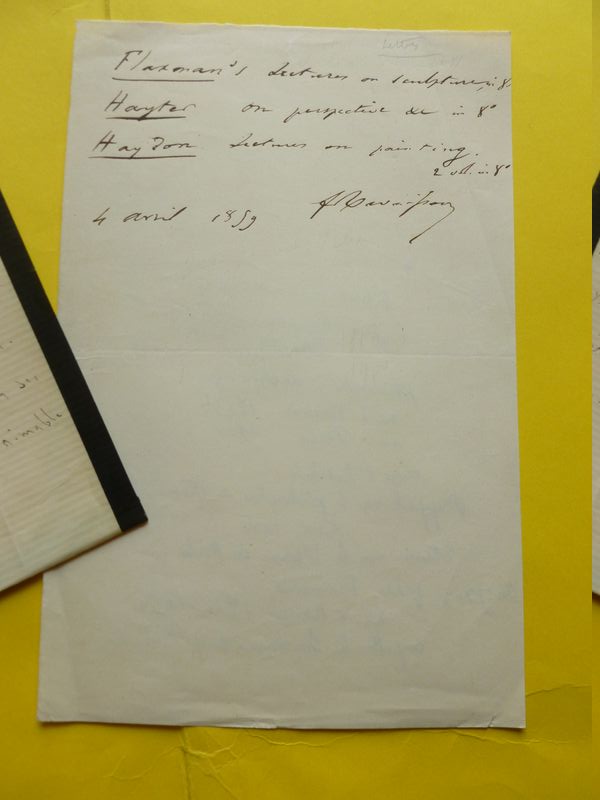 Letters
Flaxman's Lectures on sculpture, in 8°
Hayter on perspective &c in 8°
Haydon Lectures on painting.
2 vol. in 8°
4 avril 1859 F Ravaisson
nimable